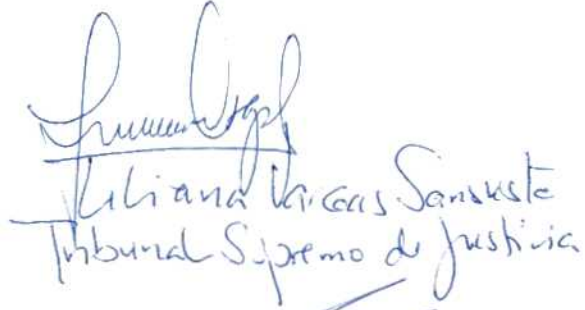 Juliana Vargas Sansuste
Tribunal Supremo de Justicia